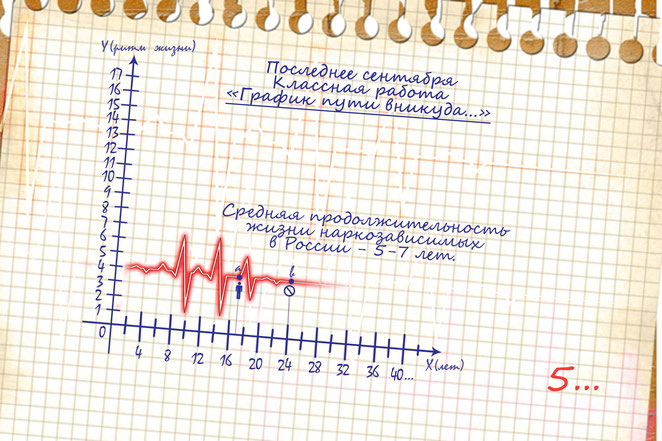 Y(ритм жизни)
Последнее сентября
Классная работа
«График пути вникуда...»
17
16
15
14
13
12
11
10
9
8
7
6
5
4
3
2
1
0
Средняя продолжительность
жизни наркозависимых
в России - 5-7 лет.
a b
4 8 12 16 20 24 28 32 36 40...
X(лет)
5...